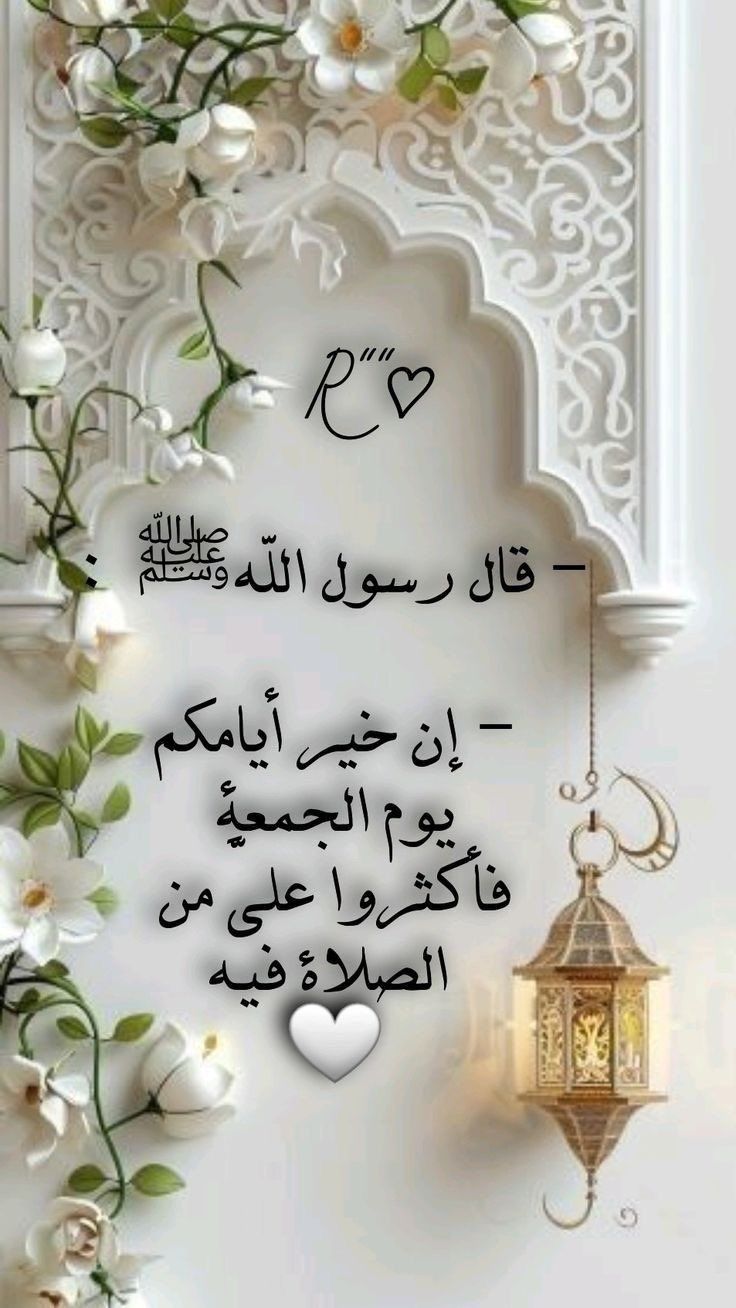 R""♡
– قال رسول اللّه ﷺ :
– إن خير أيامكم
يوم الجمعهٍٔ
فأكثروا على من
الصلاهٔ فيه
🤍